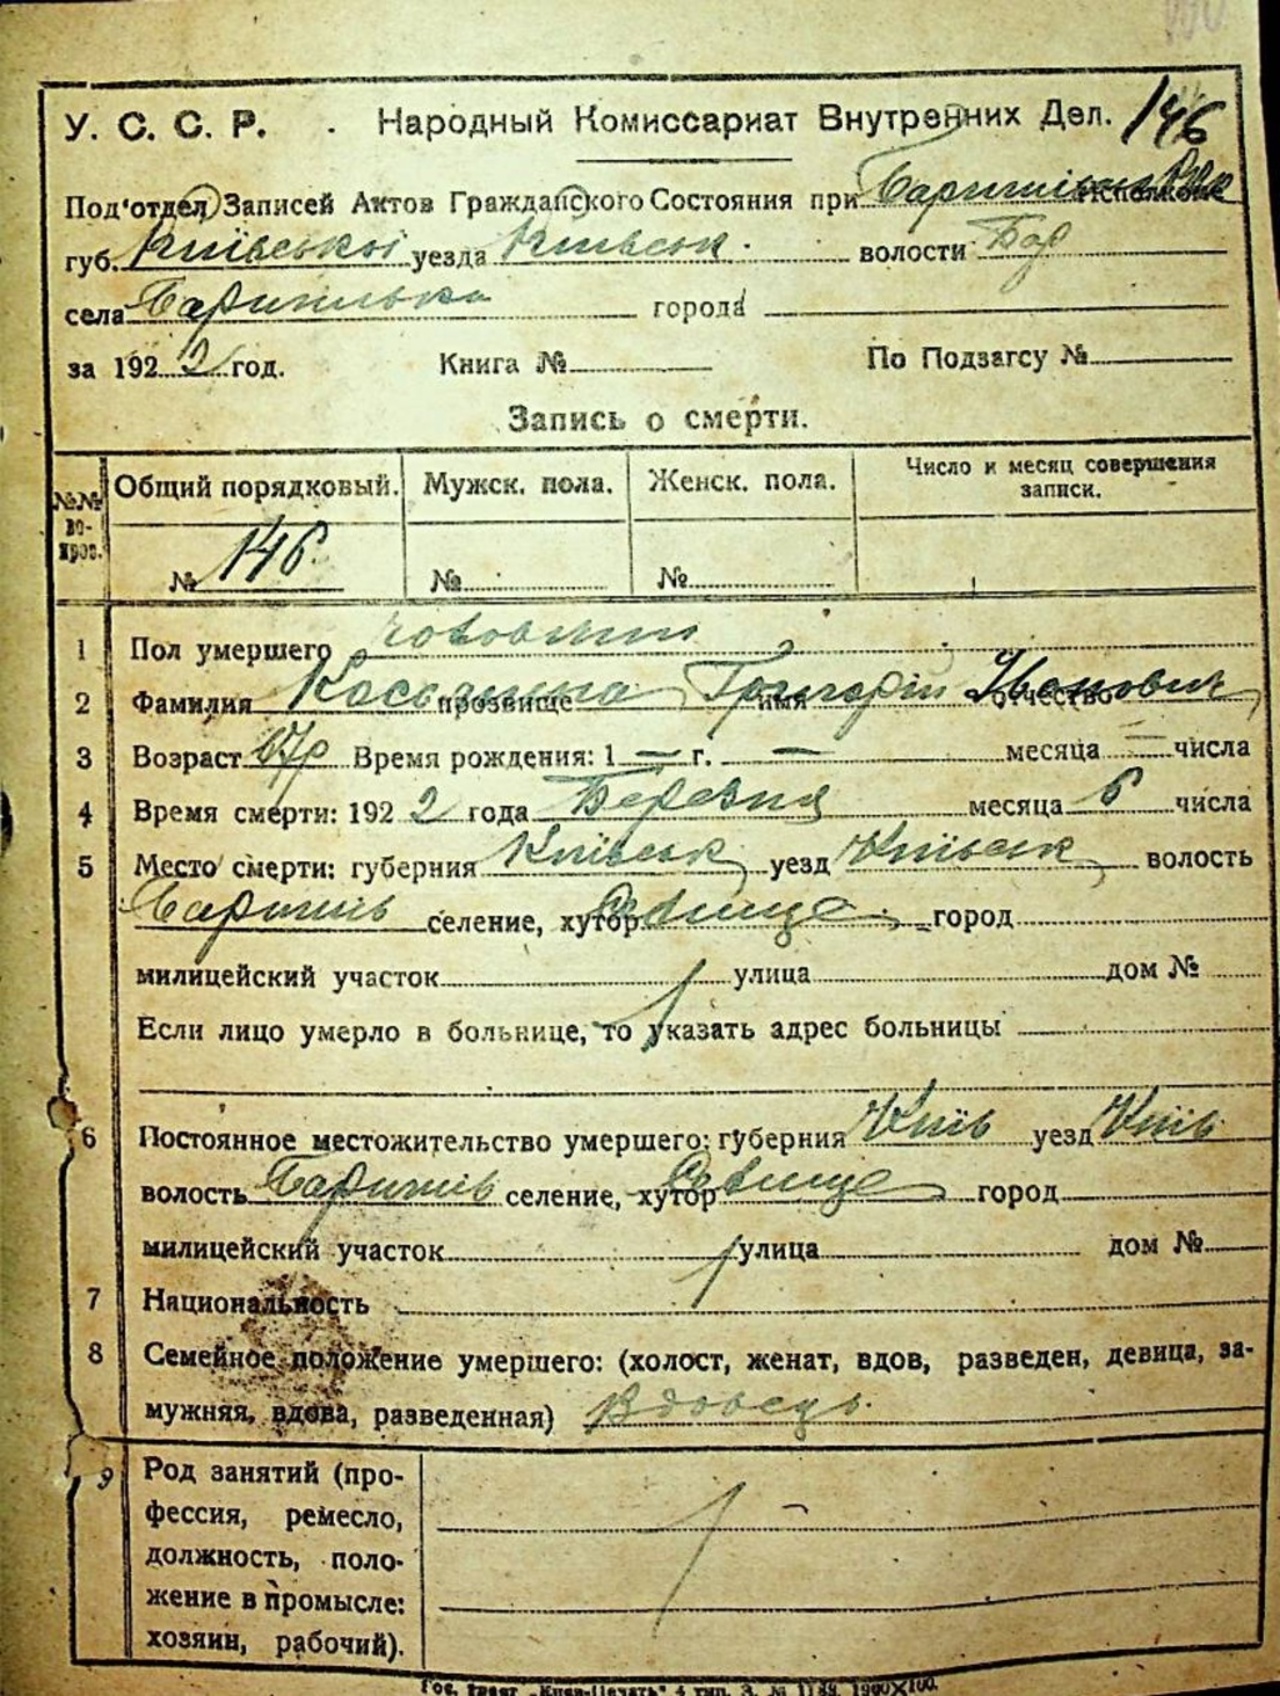 У. С. С. Р. Народный Комиссариат Внутренних Дел. 146
Под'отдел Записей Актов Гражданского Состояния при
губ. Київської уезда Київськ. волости Бар
села города
за 1922 год. Книга № По Подзагсу №
Запись о смерти.
№№ во-прос. Общий порядковый. Мужск. пола. Женск. пола. Число и месяц совершения записи.
№ 146 № №
1 Пол умершего чоловічий
2 Фамилия прозвище Григорій имя Іванович отчество
3 Возраст 67р Время рождения: 1 — г. — месяца — числа
4 Время смерти: 1922 года Березня месяца 6 числа
5 Место смерти: губерния Київськ уезд Київськ волость
Баришів селение, хутор город
милицейский участок улица дом №
Если лицо умерло в больнице, то указать адрес больницы
6 Постоянное местожительство умершего: губерния Київ уезд Київ
волость Баришів селение, хутор город
милицейский участок улица дом №
7 Национальность
8 Семейное положение умершего: (холост, женат, вдов, разведен, девица, за-
мужняя, вдова, разведенная) Вдовець.
9 Род занятий (про-
фессия, ремесло,
должность, поло-
жение в промысле:
хозяин, рабочий).